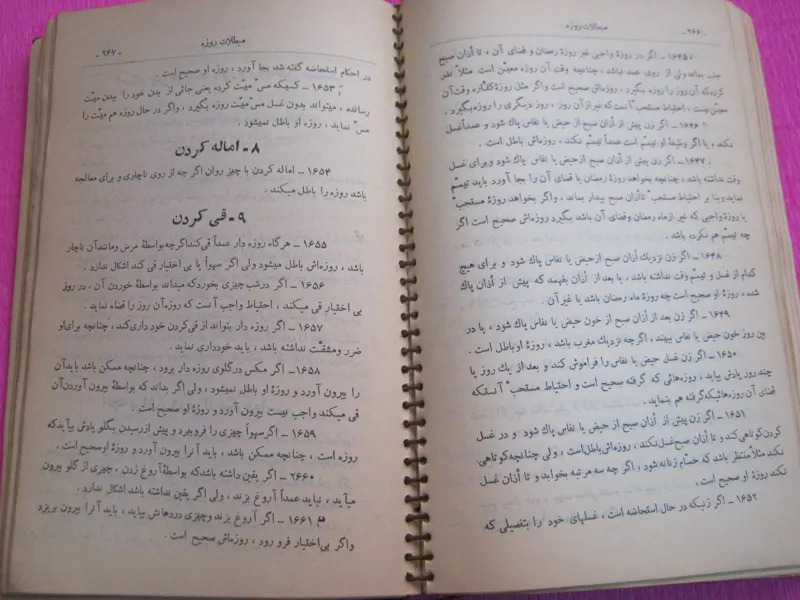 -۲۶۶-
مبطلات روزه
۱۶۴۵ ـ اگر در روزهٔ واجبی غیر روزهٔ رمضان و قضای آن ، تا أذان صبح
جنب بماند ولی از روی عمد نباشد ، چنانچه وقت آن روزه معیّن است مثلاً نذر
کرده که آن روز را روزه بگیرد ، روزه‌اش صحیح است واگر مثل روزهٔ کفّاره وقت‌آن
معیّن نیست ، احتیاط مستحب آنست که غیر از آن روز ، روز دیگری را روزه بگیرد .
۱۶۴۶ ـ اگر زن پیش از أذان صبح از حیض یا نفاس پاك شود و عمداًغسل
نکند ، یا اگر وظیفهٔ او تیمّم است عمداً تیمّم نکند ، روزه‌اش باطل است .
۱۶۴۷ ـ اگر زن پیش از أذان صبح ازحیض یا نفاس پاك شود وبرای غسل
وقت نداشته باشد ، چنانچه بخواهد روزهٔ رمضان یا قضای آن را بجا آورد باید تیمّم
نماید وبنا بر احتیاط مستحب تاأذان صبح بیدار بماند ، واگر بخواهد روزهٔ مستحب
یا روزهٔ واجبی که غیر ازماه رمضان وقضای آن باشد بگیرد روزه‌اش صحیح است اگر
چه تیمّم هم نکرده باشد .
۱۶۴۸ ـ اگر زن نزدیك أذان صبح ازحیض یا نفاس پاك شود و برای هیچ
کدام از غسل و تیمّم وقت نداشته باشد ، یا بعد از أذان بفهمد که پیش از أذان پاك
شده ، روزهٔ او صحیح است چه روزهٔ ماه رمضان باشد یا غیر آن .
۱۶۴۹ ـ اگر زن بعد از أذان صبح از خون حیض یا نفاس پاك شود ، یا در
بین روز خون حیض یا نفاس ببیند ، اگرچه نزدیك مغرب باشد ، روزهٔ اوباطل است .
۱۶۵۰ ـ اگر زن غسل حیض یا نفاس را فراموش کند و بعد از یك روز یا
چند روز یادش بیاید ، روزه‌هائی که گرفته صحیح است و احتیاط مستحب آنستکه
قضای آن روزه‌هائیکه‌گرفته هم بنماید .
۱۶۵۱ ـ اگر زن پیش از أذان صبح از حیض یا نفاس پاك شود و در غسل
کردن کوتاهی کند و تا أذان صبح غسل نکند ، روزه‌اش باطل‌است ، ولی چنانچه‌کوتاهی
نکند مثلاًمنتظر باشد که حمّام زنانه شود ، اگر چه سه مرتبه بخوابد و تا أذان غسل
نکند روزهٔ او صحیح است .
۱۶۵۲ ـ اگر زنیکه در حال استحاضه است ، غسلهای خود را بتفصیلی که
مبطلات روزه
-۲۶۷-
در احکام استحاضه گفته شد بجا آورد ، روزه او صحیح است
۱۶۵۳ ـ کسیکه مسّ میّت کرده یعنی جائی از بدن خود را ببدن میّت
رسانده ، میتواند بدون غسل مسّ‌میّت روزه بگیرد ، واگر در حال روزه هم میّت را
مسّ نماید ، روزه او باطل نمیشود .
۸ - اماله کردن
۱۶۵۴ ـ اماله کردن با چیز روان اگر چه از روی ناچاری و برای معالجه
باشد روزه را باطل میکند .
۹ - قی کردن
۱۶۵۵ ـ هرگاه روزه دار عمداً قی‌کنداگرچه بواسطهٔ مرض ومانندآن ناچار
باشد ، روزه‌اش باطل میشود ولی اگر سهواً یا بی اختیار قی کند اشکال ندارد .
۱۶۵۶ ـ اگر درشب چیزی بخوردکه میداند بواسطهٔ خوردن آن ، در روز
بی اختیار قی میکند ، احتیاط واجب آ نست که روزهٔ‌آن روز را قضاء نماید .
۱۶۵۷ ـ اگر روزه دار بتواند از قی‌کردن خود داری‌کند ، چنانچه برای‌او
ضرر ومشقّت نداشته باشد ، باید خودداری نماید .
۱۶۵۸ ـ اگر مگس درگلوی روزه دار برود ، چنانچه ممکن باشد بایدآن
را بیرون آورد و روزهٔ او باطل نمیشود ، ولی اگر بداند که بواسطهٔ بیرون آوردن‌آن
قی میکند واجب نیست بیرون آورد و روزهٔ او صحیح است .
۱۶۵۹ ـ اگرسهواً چیزی را فروببرد و پیش ازرسیدن بگلو یادش بیآیدکه
روزه است ، چنانچه ممکن باشد ، باید آ نرا بیرون آورد و روزهٔ اوصحیح است .
۲۶۶۰ ـ اگر یقین داشته باشدکه بواسطهٔ آروغ زدن ، چیزی از گلو بیرون
میآید ، نباید عمداً آروغ بزند ، ولی اگر یقین نداشته باشد اشکال ندارد .
۱۶۶۱ ـ اگر آروغ بزند وچیزی دردهانش بیاید ، باید آنرا بیرون بریزد
واگر بی‌اختیار فرو رود ، روزه‌اش صحیح است .